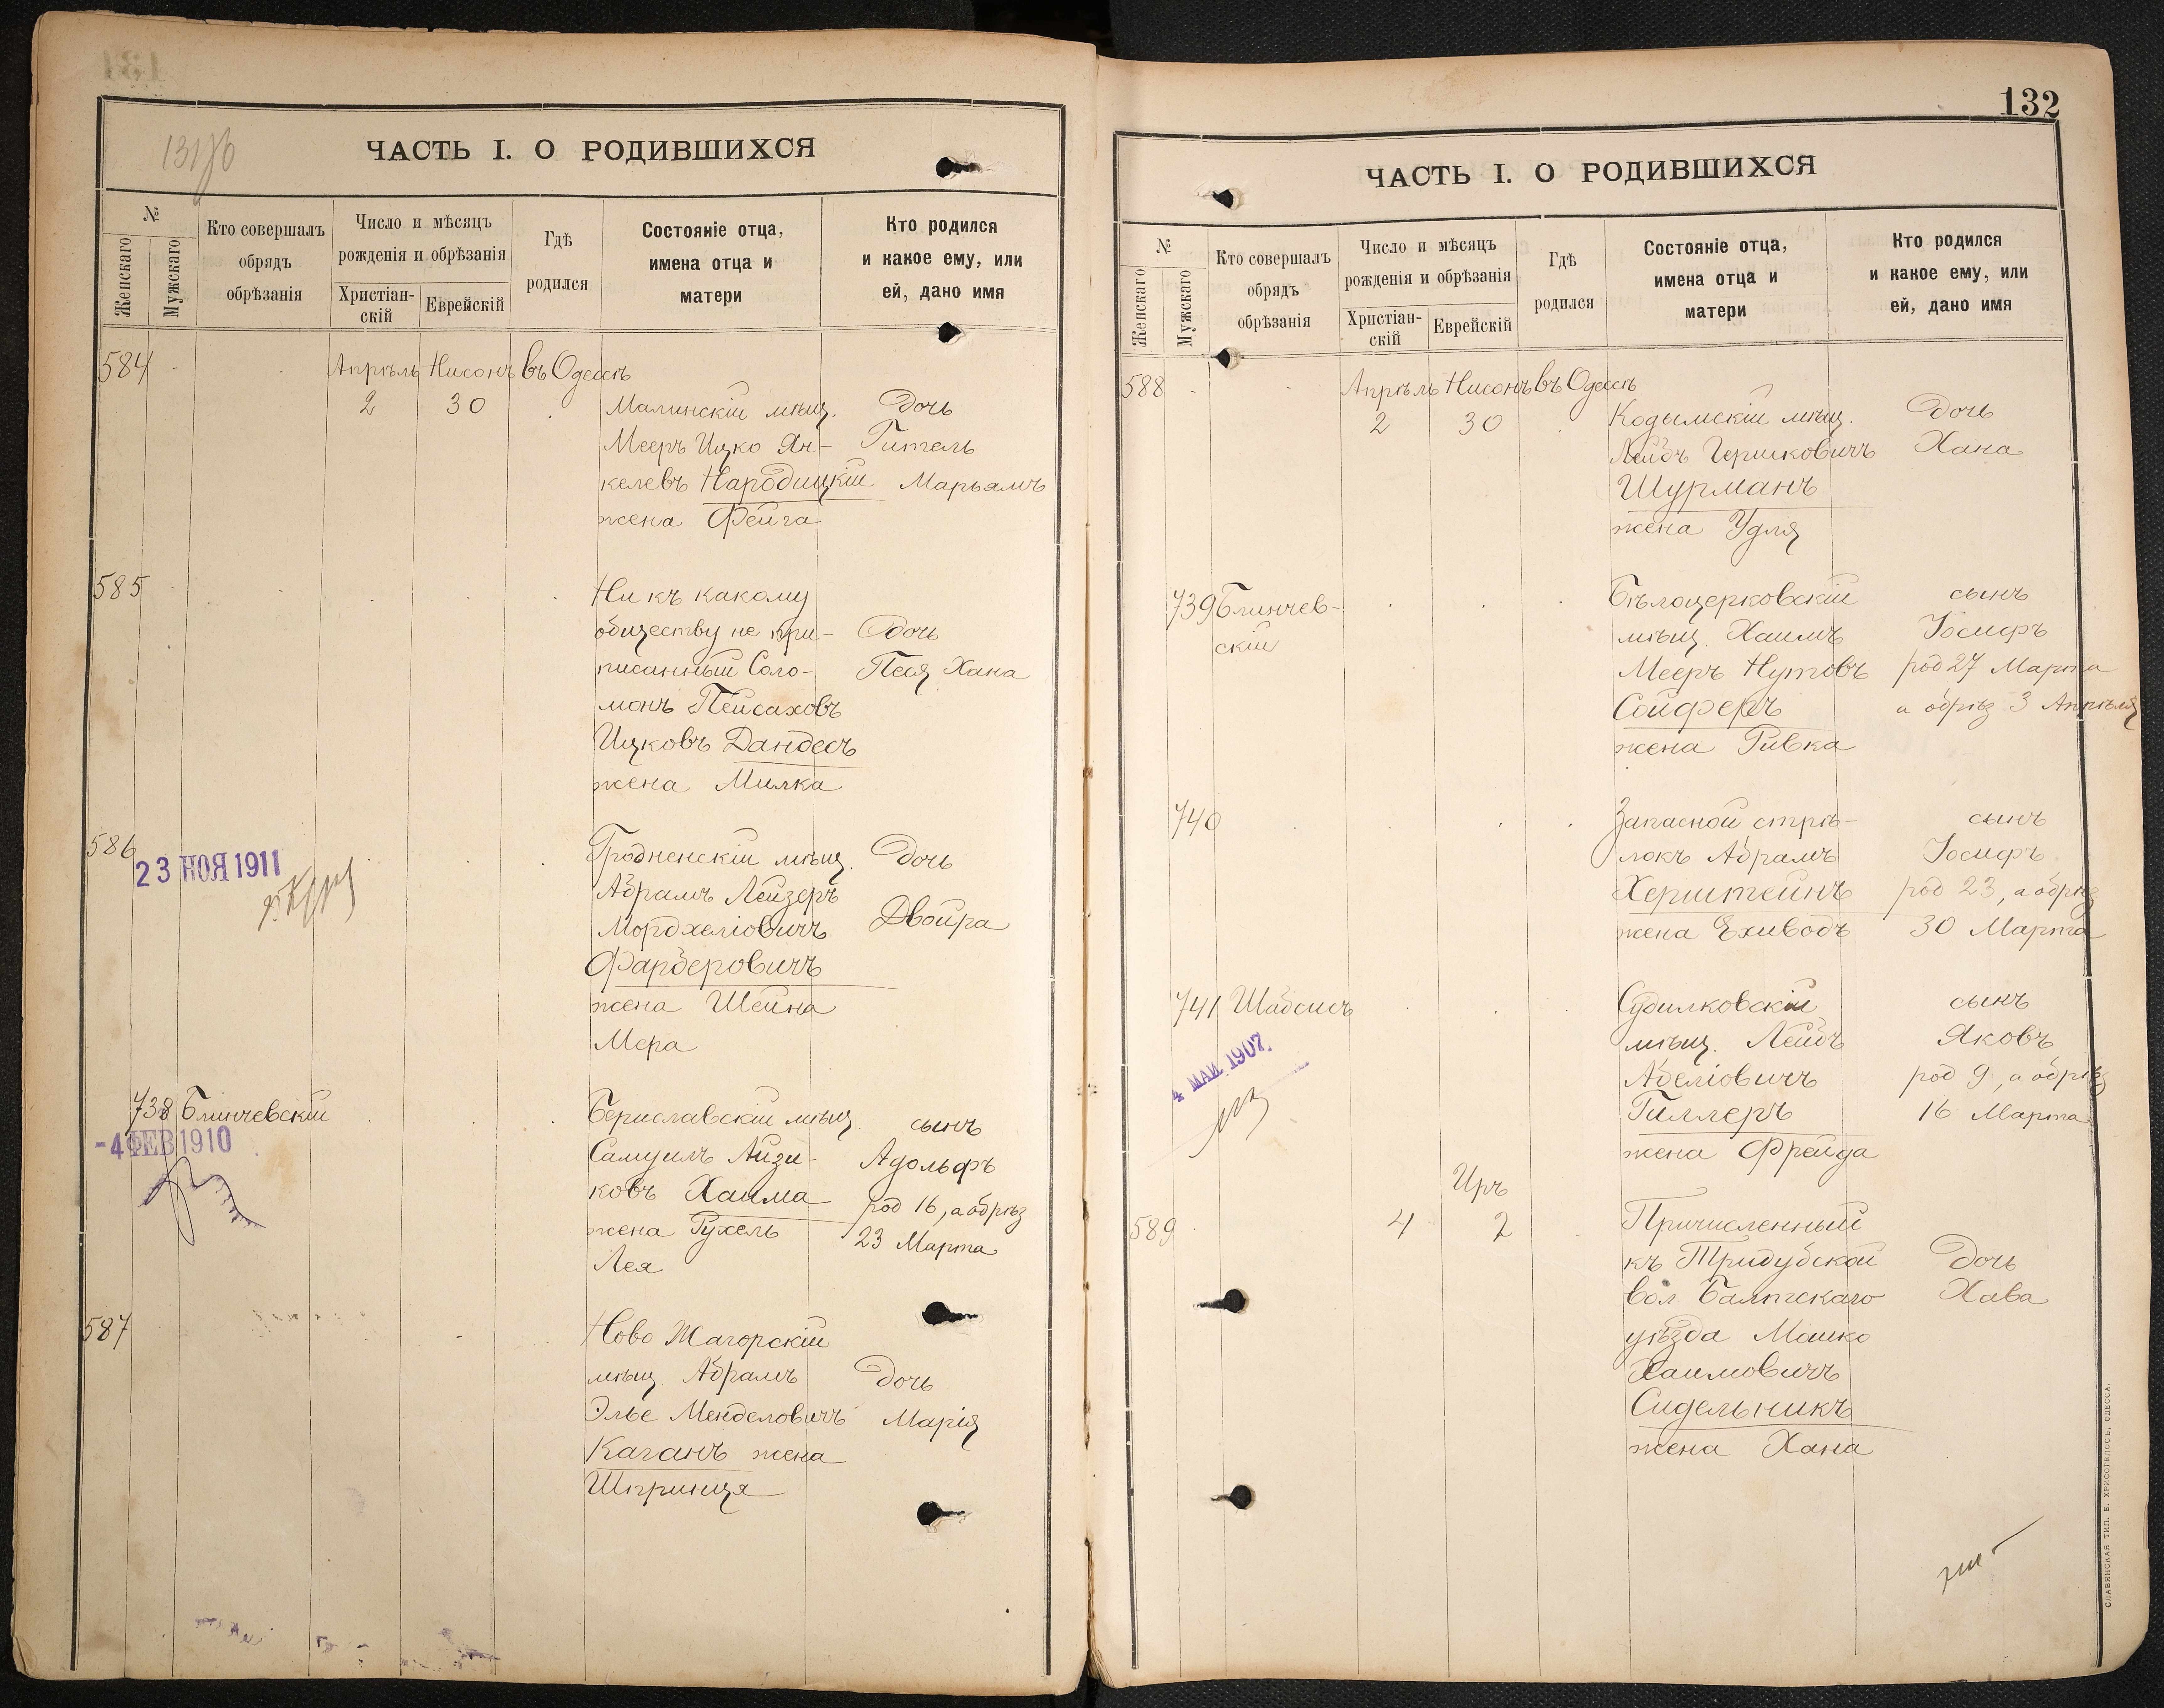 131об
ЧАСТЬ I. О РОДИВШИХСЯ
№
Женскаго
Мужскаго
Кто совершалъ
обрядъ
обрѣзанія
Число и мѣсяцъ
рожденія и обрѣзанія
Христіан-
скій
Еврейскій
Гдѣ
родился
Состояніе отца,
имена отца и
матери
Кто родился
и какое ему, или
ей, дано имя
584 Апрѣль Нисонъ въ Одессѣ
2 30 Малинскій мѣщ. Дочь
Мееръ Ицко Ян- Гитель
келевъ Народицкій Марьямъ
жена Фейга
585 Ни къ какому
обществу не при- Дочь
писанный Соло- Песя Хана
монъ Пейсаховъ
Ицковъ Дандесъ
жена Милка
586 Гродненскій мѣщ. Дочь
23 НОЯ 1911
Абрамъ Лейзеръ
Мордхеліовичъ Двойра
Фарберовичъ
жена Шейна
Мера
738 Блинчевскій Бериславскій мѣщ. сынъ
-4 ФЕВ 1910
Самуилъ Айзи- Адольфъ
ковъ Хаима род 16, а обрѣз
жена Рухель 23 Марта
Лея
587 Ново Жагорскій
мѣщ. Абрамъ Дочь
Элье Менделовичъ Марія
Каганъ жена
Шпринця
132
ЧАСТЬ I. О РОДИВШИХСЯ
№
Женскаго
Мужскаго
Кто совершалъ
обрядъ
обрѣзанія
Число и мѣсяцъ
рожденія и обрѣзанія
Христіан-
скій
Еврейскій
Гдѣ
родился
Состояніе отца,
имена отца и
матери
Кто родился
и какое ему, или
ей, дано имя
588 Апрѣль Нисонъ въ Одессѣ
2 30 Кодымскій мѣщ. Дочь
Лейбъ Гершковичъ Хана
Шурманъ
жена Удля
739 Блинчев- Бѣлоцерковскій сынъ
скій мѣщ. Хаимъ Іосифъ
Мееръ Нутовъ род 27 Марта
Сойферъ а обрѣз 3 Апрѣля
жена Ривка
740 Запасной стрѣ- сынъ
локъ Абрамъ Іосифъ
Херштейнъ род 23, а обрѣз
жена Ехиводъ 30 Марта
741 Шабсисъ Судилковскій сынъ
4 МАИ 1907.
мѣщ. Лейбъ Яковъ
Абеліовичъ род 9, а обрѣз
Гиллеръ 16 Марта
жена Фрейда
Иръ
589 4 2 Причисленный
къ Тридубской Дочь
вол. Балтскаго Хава
уѣзда Мошко
Хаимовичъ
Сидельникъ
жена Хана
СЛАВЯНСКАЯ ТИП. Е. ХРИСОГЕЛОСЪ, ОДЕССА.